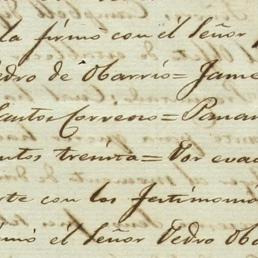 la firmo con el Señor
Pedro de Obarrio= Jame
Santos Correoso= Panam
entos treinta= Por evac
rte con los testimoni
irmó el Señor Pedro Oba